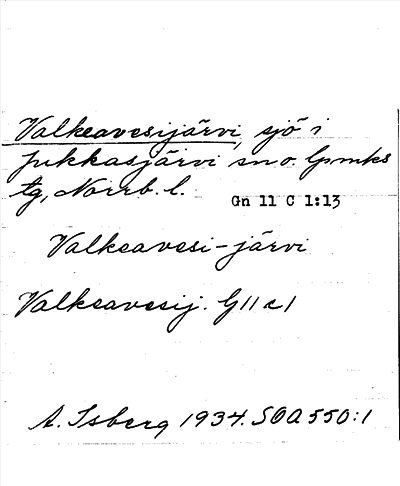 Valkeavesijärvi, sjö i
Jukkasjärvi sn o. lpmks
tg, Norrb. l.
Gn 11 C 1:13
Valkeavesi-järvi
Valkeavesij. G 11 a 1
A. Isberg 1934. SOA 550:1